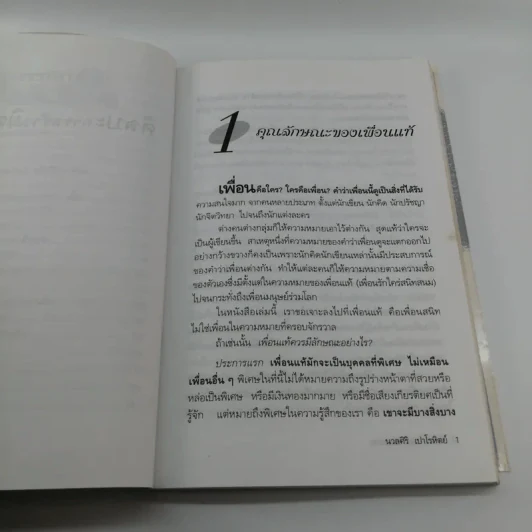 1 คุณลักษณะของเพื่อนแท้
เพื่อนคือใคร? ใครคือเพื่อน? คำว่าเพื่อนนี้ดูเป็นสิ่งที่ได้รับ
ความสนใจมาก จากคนหลายประเภท ตั้งแต่นักเขียน นักคิด นักปรัชญา
นักจิตวิทยา ไปจนถึงนักแต่งละคร
ต่างคนต่างกลุ่มก็ให้ความหมายเอาไว้ต่างกัน สุดแท้ว่าใครจะ
เป็นผู้เขียนขึ้น สาเหตุหนึ่งที่ความหมายของคำว่าเพื่อนดูจะแตกออกไป
อย่างกว้างขวางก็คงเป็นเพราะนักคิดนักเขียนเหล่านั้นมีประสบการณ์
ของคำว่าเพื่อนต่างกัน ทำให้แต่ละคนก็ให้ความหมายตามความเชื่อ
ของตัวเองซึ่งมีตั้งแต่ในความหมายของเพื่อนแท้ (เพื่อนรักใคร่สนิทสนม)
ไปจนกระทั่งถึงเพื่อนมนุษย์ร่วมโลก
ในหนังสือเล่มนี้ เราขอเจาะลงไปที่เพื่อนแท้ คือเพื่อนสนิท
ไม่ใช่เพื่อนในความหมายที่ครอบจักรวาล
ถ้าเช่นนั้น เพื่อนแท้ควรมีลักษณะอย่างไร?
ประการแรก เพื่อนแท้มักจะเป็นบุคคลที่พิเศษ ไม่เหมือน
เพื่อนอื่น ๆ พิเศษในที่นี้ไม่ได้หมายความถึงรูปร่างหน้าตาที่สวยหรือ
หล่อเป็นพิเศษ หรือมีเงินทองมากมาย หรือมีชื่อเสียงเกียรติยศเป็นที่
รู้จัก แต่หมายถึงพิเศษในความรู้สึกของเรา คือ เขาจะมีบางสิ่งบาง
นวลศิริ เปาโรหิตย์ 1